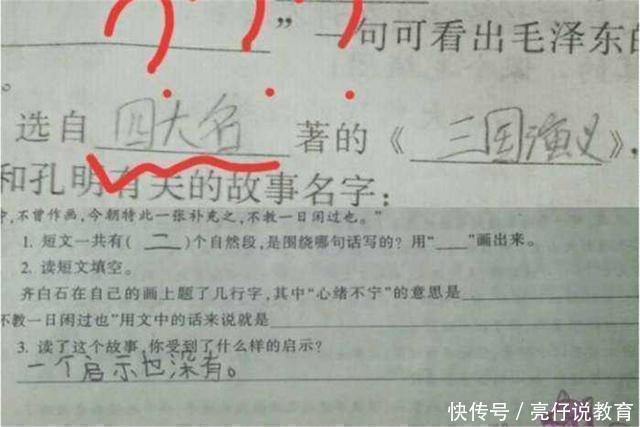 ”一句可看出毛泽东的
。
选自 四大名 著的《 三国演义 》,
和孔明有关的故事名字:
中,不曾作画,今朝特此一张补充之,不教一日闲过也。”
1. 短文一共有( 二 )个自然段,是围绕哪句话写的? 用“___”画出来。
2. 读短文填空。
齐白石在自己的画上题了几行字,其中“心绪不宁”的意思是
不教一日闲过也”用文中的话来说就是
3. 读了这个故事,你受到了什么样的启示?
一个启示也深有。
快传号/亮仔说教育